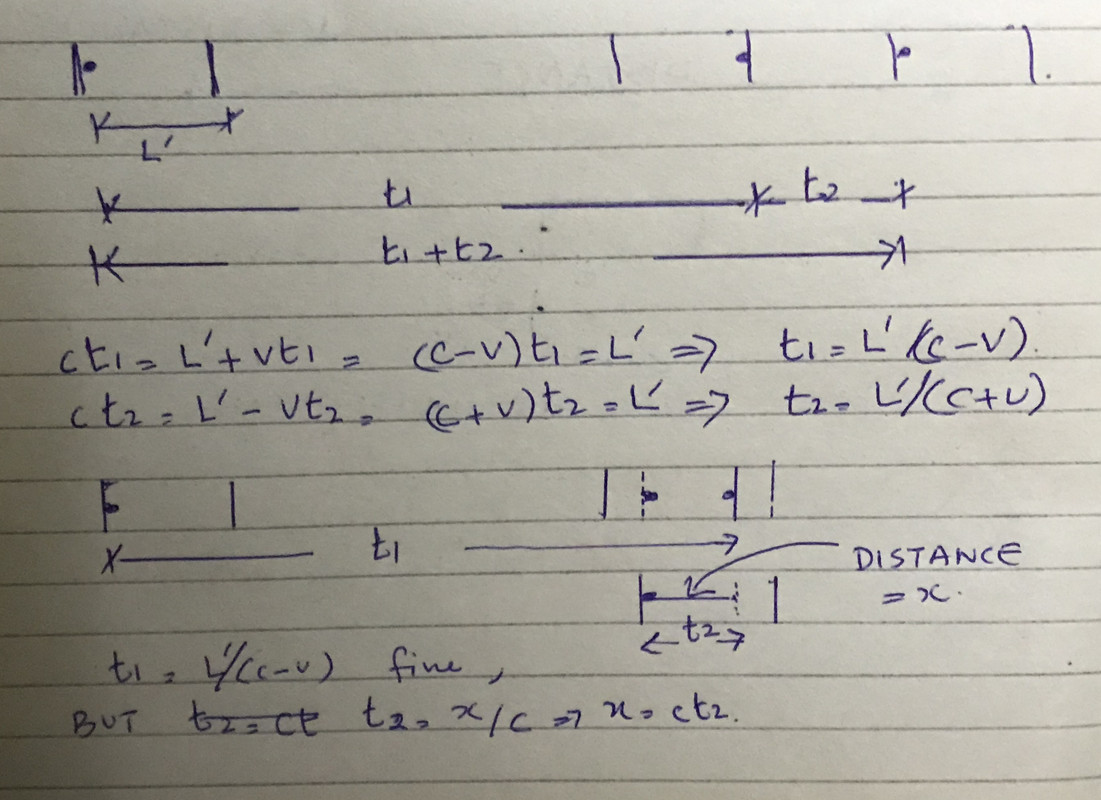 L'
t1 t2
t1+t2.
ct1 = L'+vt1 = (c-v)t1 = L' => t1 = L'/(c-v).
ct2 = L'-vt2 = (c+v)t2 = L' => t2 = L'/(c+v)
t1 DISTANCE
= x.
t2
t1 = L'/(c-v) fine,
BUT t2=ct t2 = x/c => x = ct2.